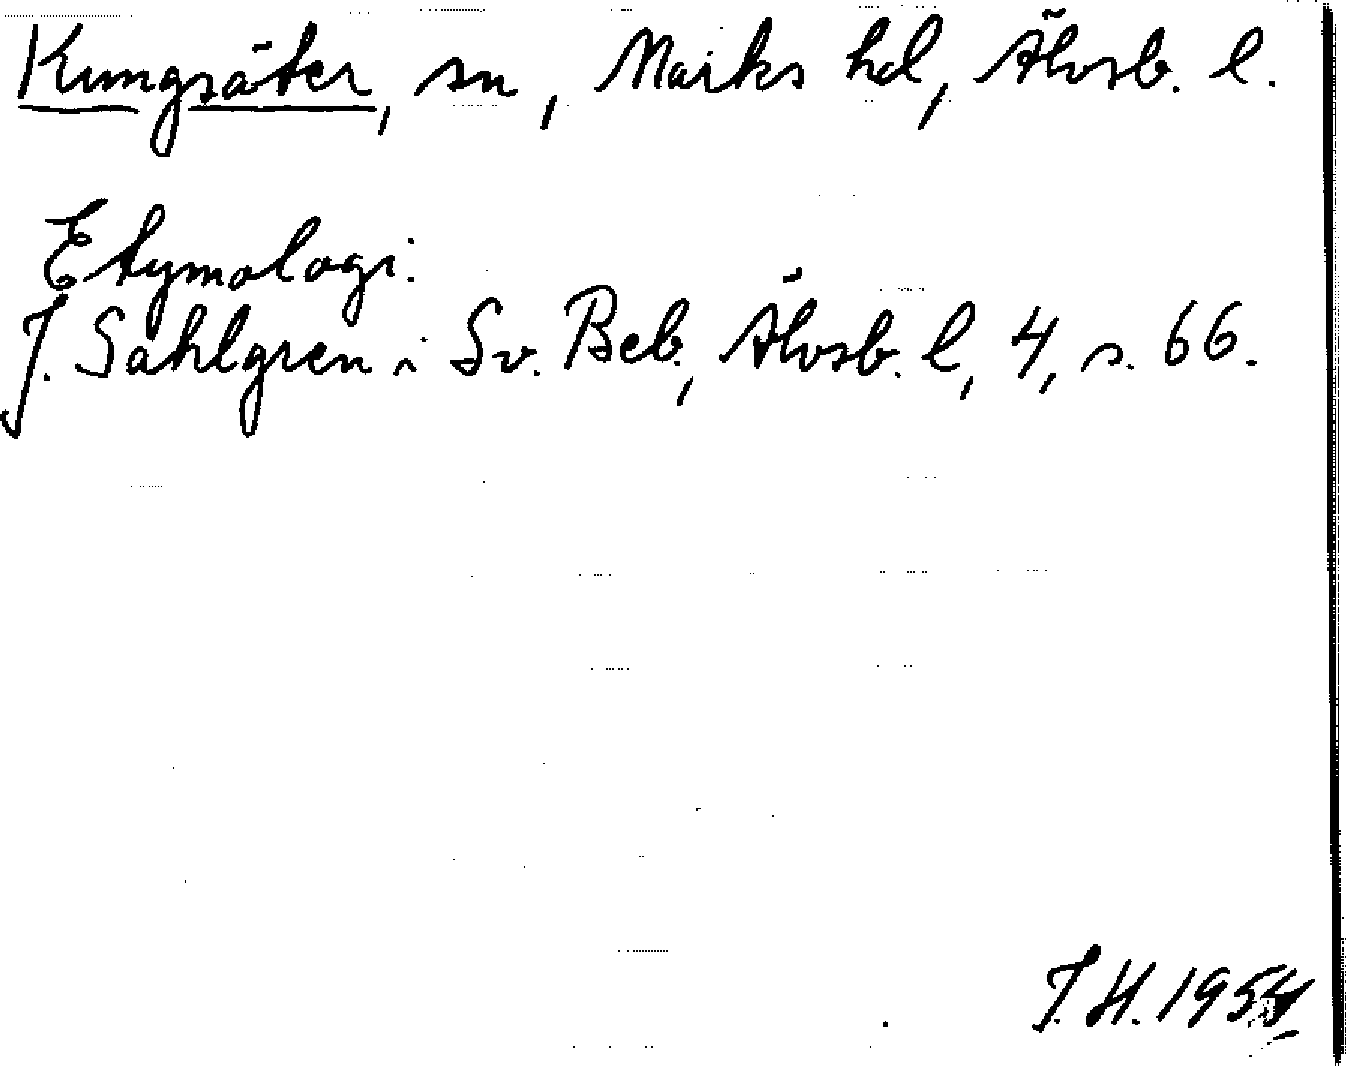 Kungsäter, sn, Marks hd, Älvsb. l.
Etymologi:
J. Sahlgren i Sv. Beb., Älvsb. l, 4, s. 66.
J.H. 1954